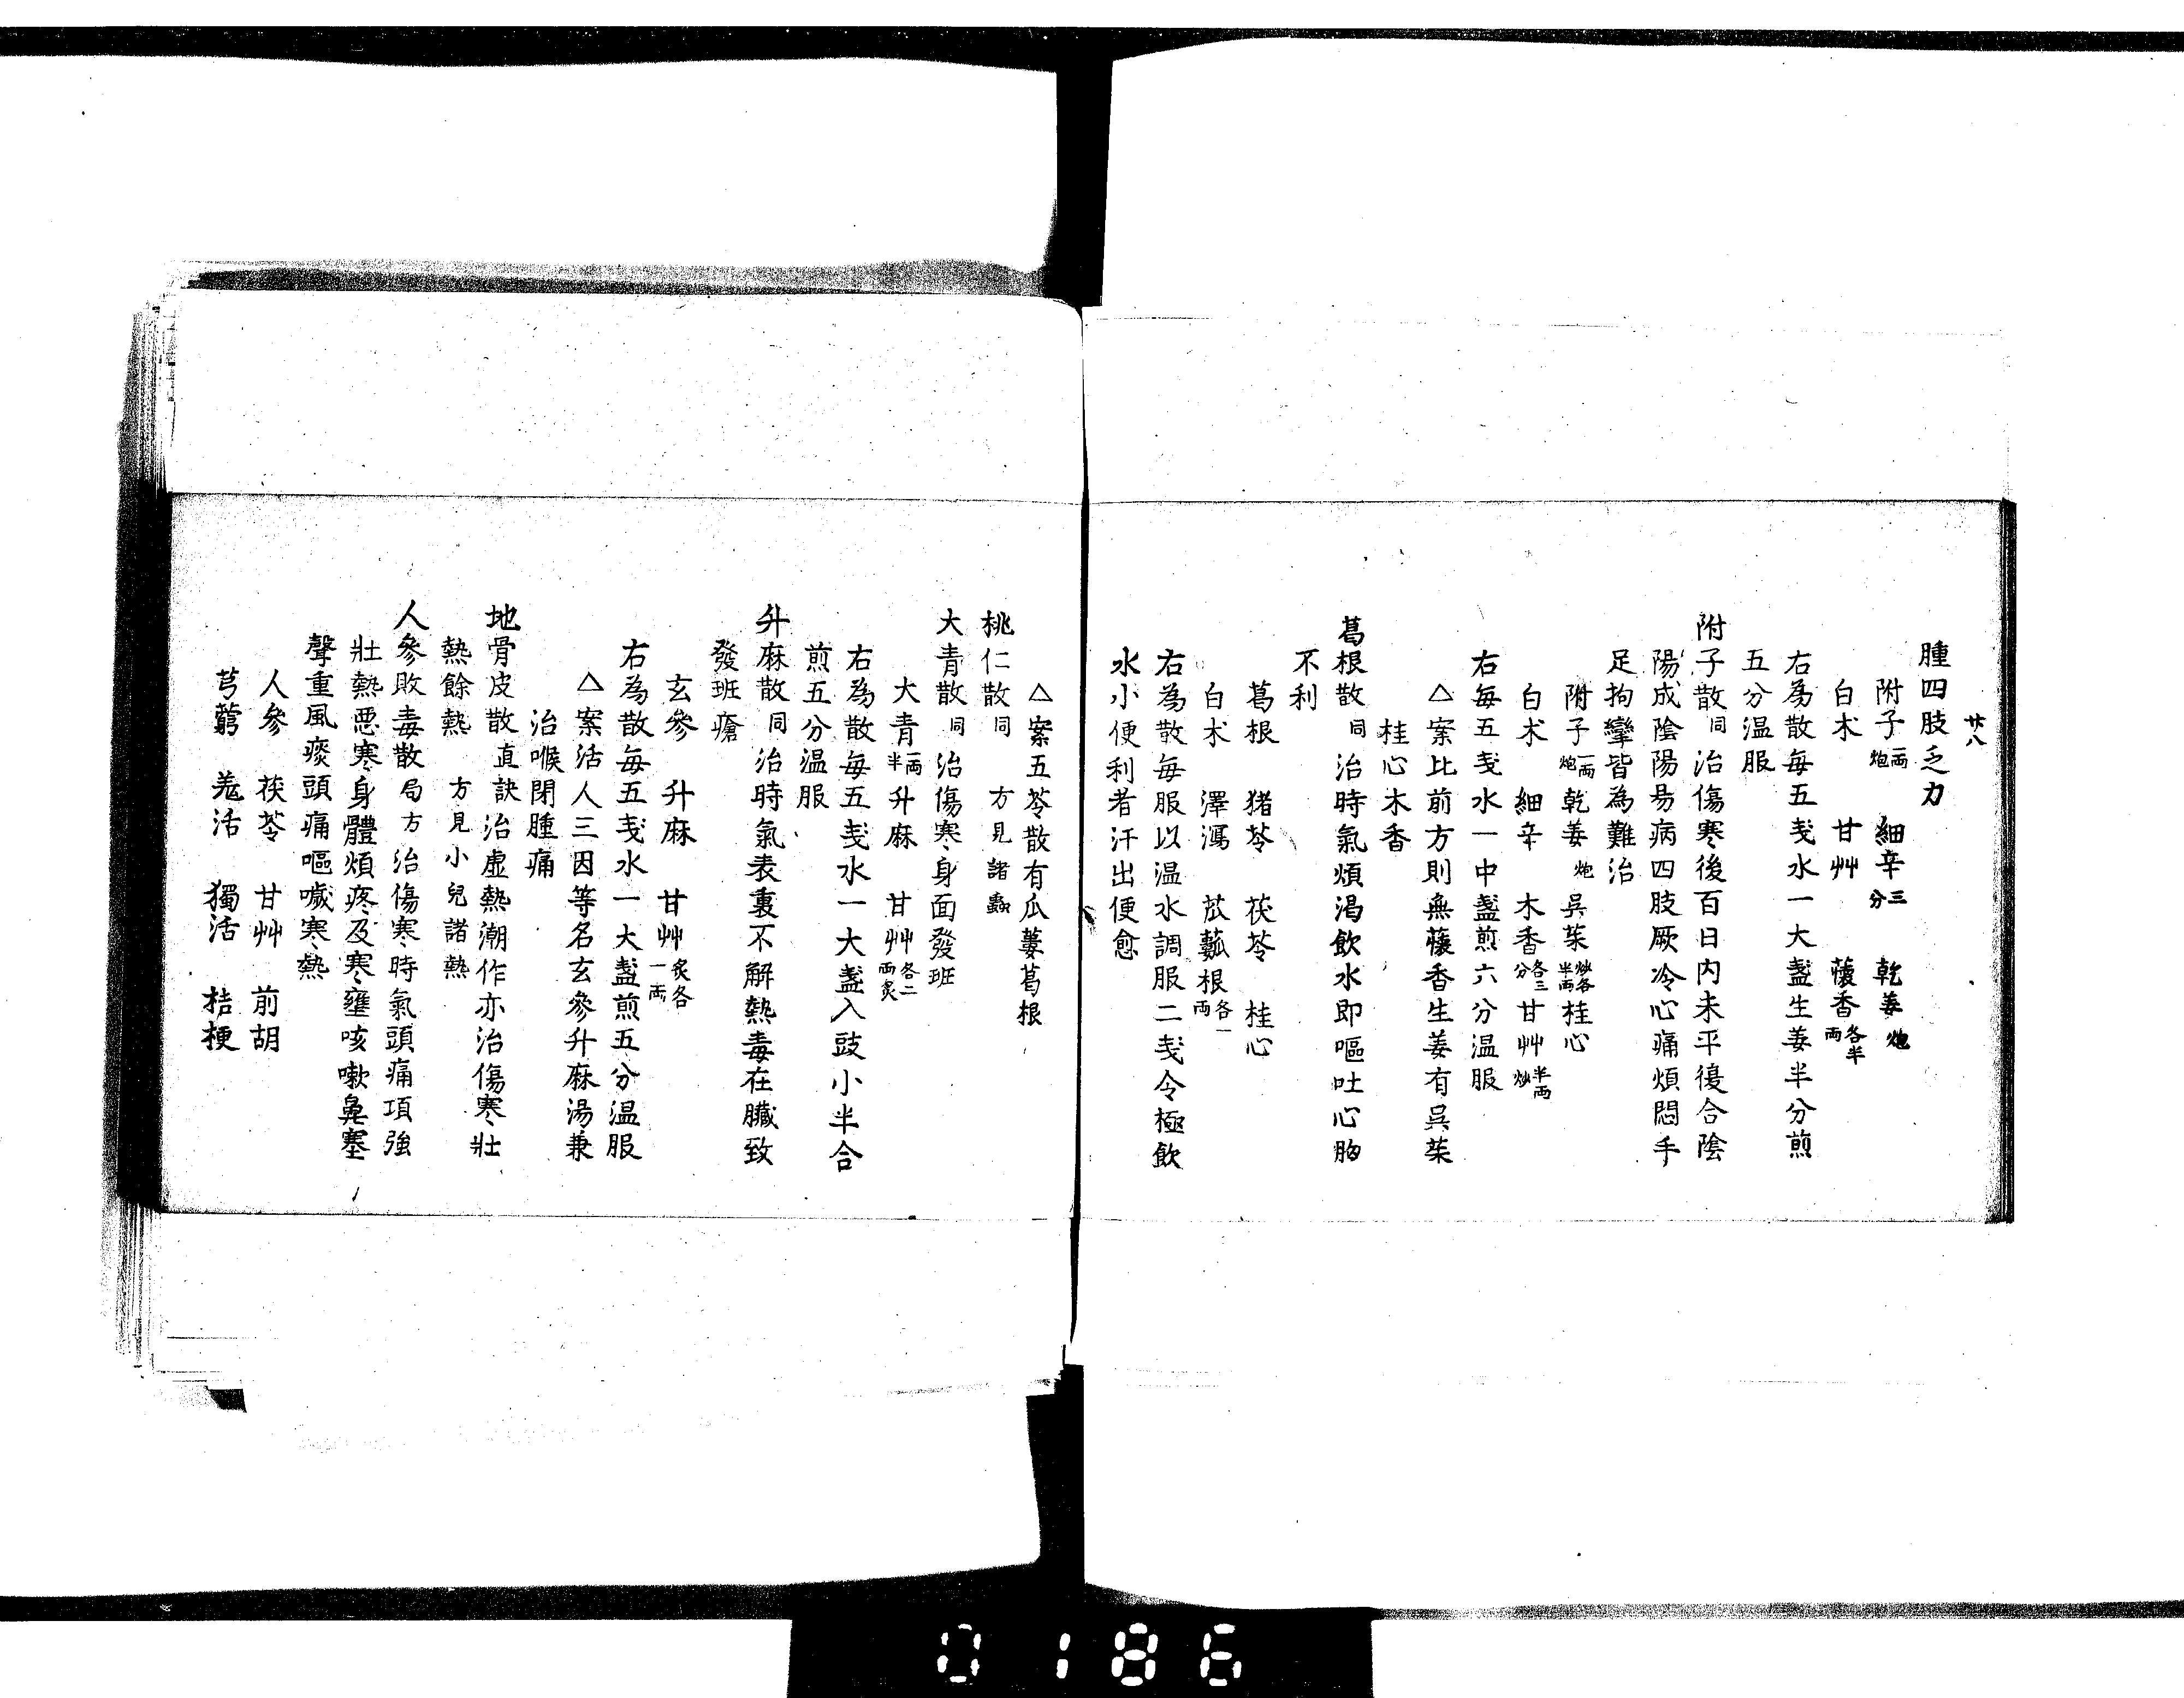 廿八
腫四肢乏力
附子一両炮　細辛三分　乾姜炮
白朮　甘艸　藿香各半両
右為散毎五戔水一大盞生姜半分煎
五分温服
附子散同治傷寒後百日内未平復合陰
陽成陰陽昜病四肢厥冷心痛煩悶手
足拘攣皆為難治
附子一両炮乾姜炮呉茱炒各半両桂心
白朮　細辛　木香各三分甘艸半両炒
右毎五戔水一中盞煎六分温服
△案比前方則無藿香生姜有呉茱
桂心木香
葛根散同治時氣煩渇飲水即嘔吐心胸
不利
葛根　猪苓　茯苓　桂心
白朮　澤瀉　苽蔞根各一両
右為散毎服以温水調服二戔令極飲
水小便利者汗出便愈
△案五苓散有瓜蔞葛根
桃仁散同　方見諸蟲
大青散同治傷寒身面發班
大青一両半升麻　甘艸各二両炙
右為散毎五戔水一大盞入豉小半合
煎五分温服
升麻散同治時氣表裏不解熱毒在臓致
發班瘡
玄参　升麻　甘艸炙各一両
右為散毎五戔水一大盞煎五分温服
△案活人三因等名玄參升麻湯兼
治喉閉腫痛
地骨皮散直訣治虚熱潮作亦治傷寒壮
熱餘熱　方見小兒諸熱
人參敗毒散局方治傷寒時氣頭痛項強
壮熱悪寒身體煩疼及寒壅咳嗽鼻塞
聲重風痰頭痛嘔噦寒熱
人參　茯苓　甘艸　前胡
芎藭　羗活　獨活　桔梗
0186